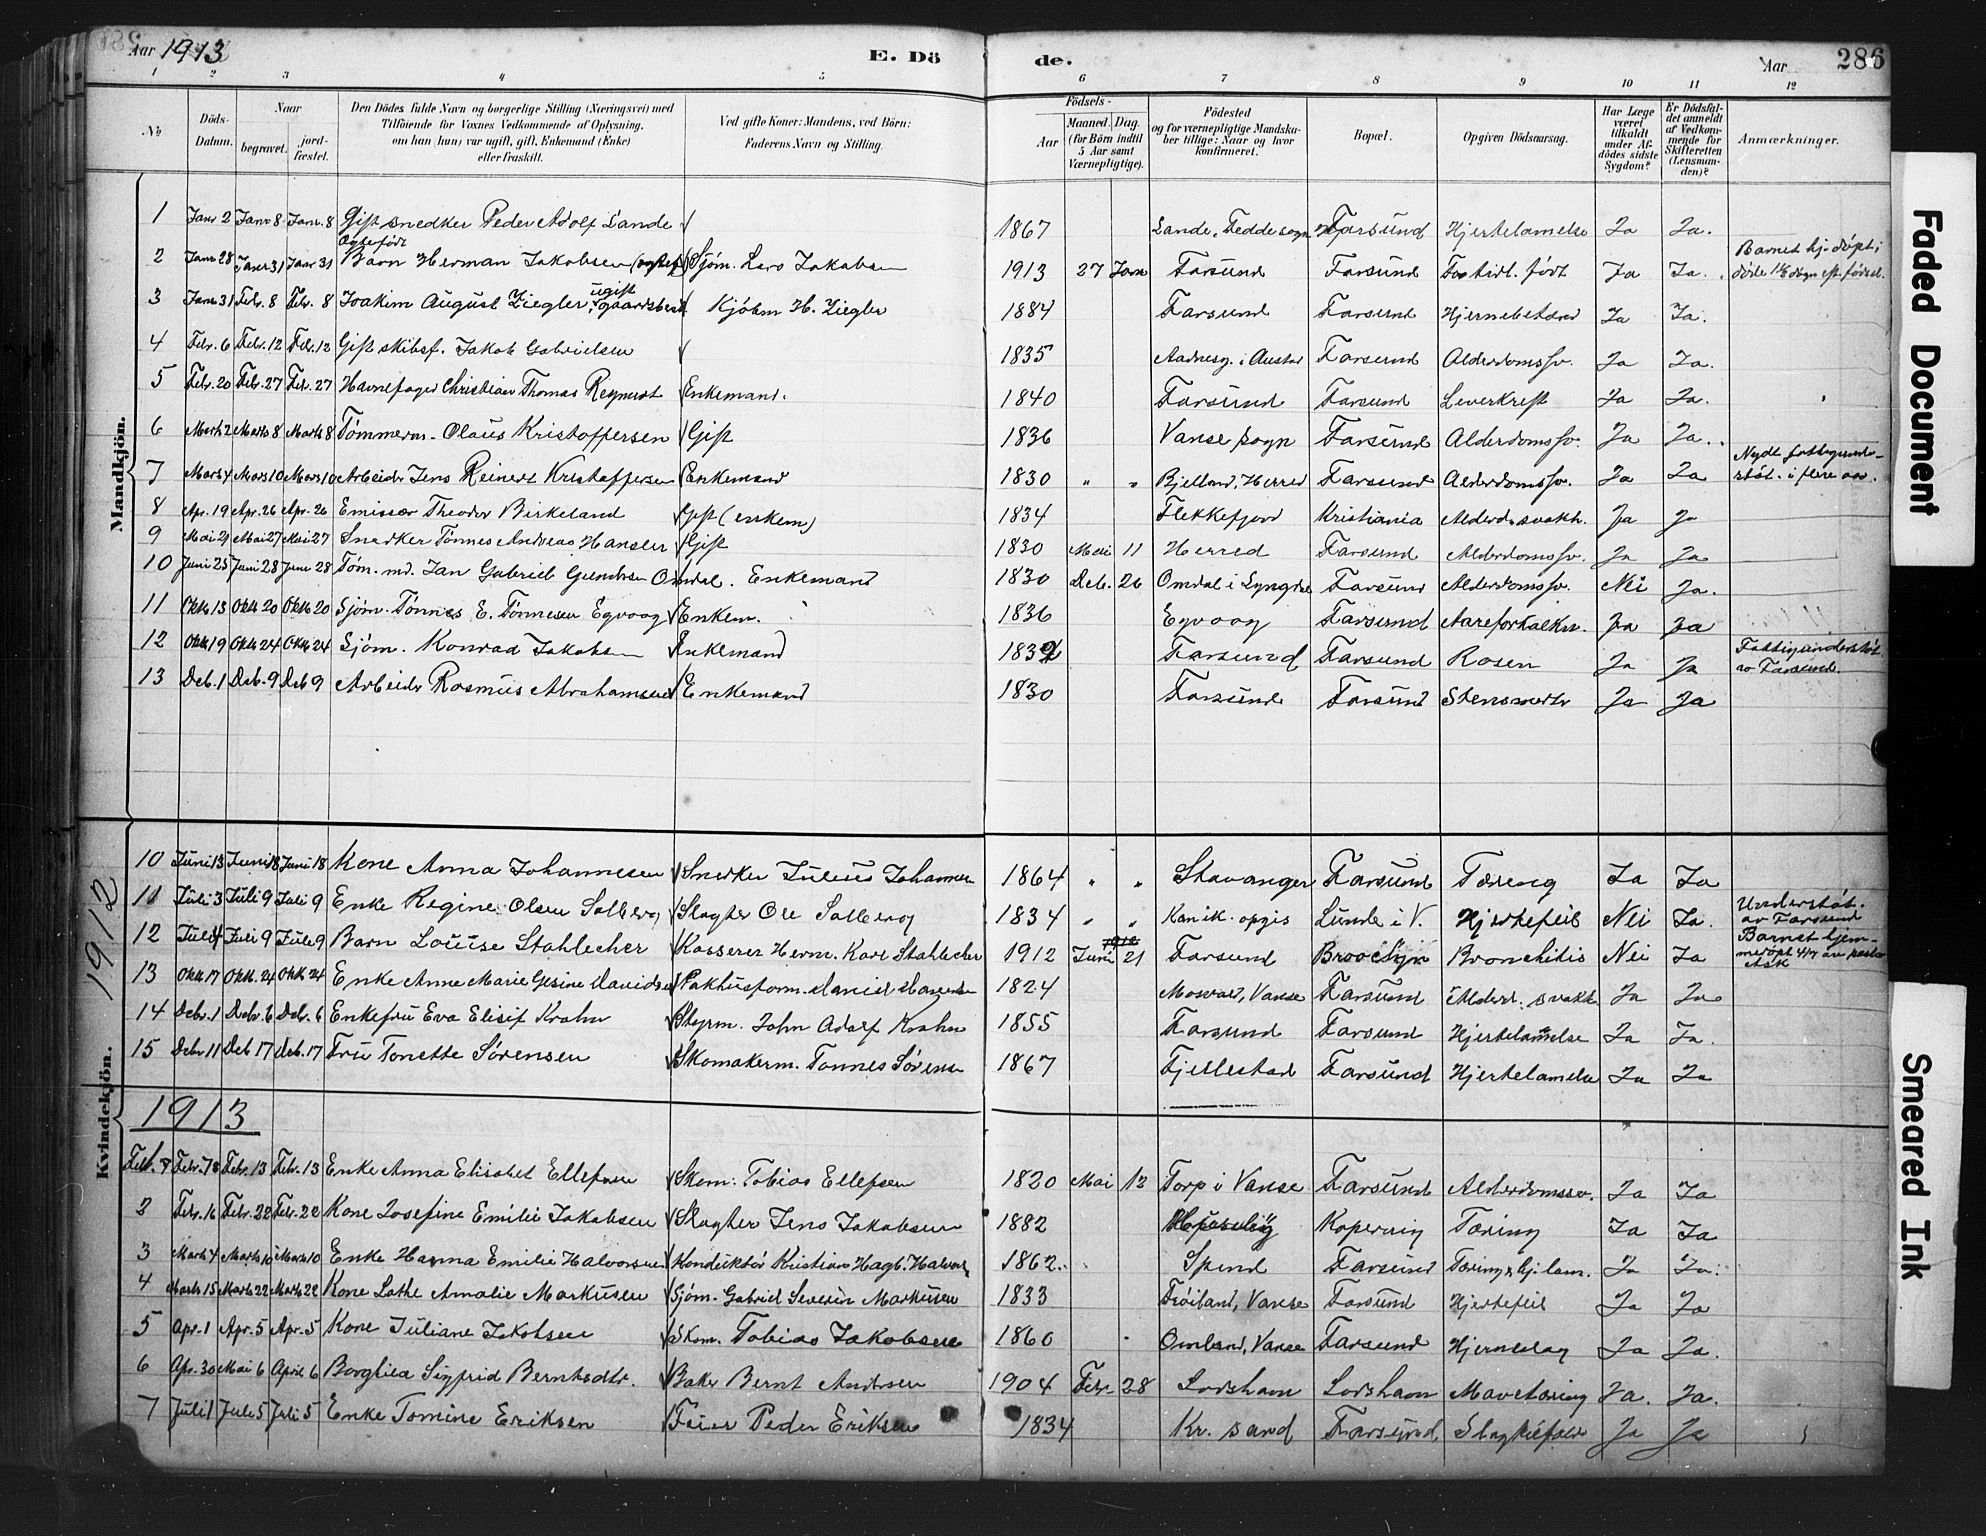 Aar 1913
E. Dö
de.
Aar
286
1 2 3 4 5 6 7 8 9 10 11 12
No
Döds-Datum.
Naar
begravet.
jord-fæstet.
Den Dödes fulde Navn og borgerlige Stilling (Næringsvei) med
Tilföiende for Voxnes Vedkommende af Oplysning,
om han (hun) var ugift, gift, Enkemand (Enke)
eller fraskilt.
Ved gifte Koner: Mandens, ved Börn:
Faderens Navn og Stilling.
Födsels-
Aar
Maaned. Dag.
(for Börn indtil
5 Aar samt
Værnepligtige).
Födested
og for værnepligtige Mandska-
ber tillige: Naar og hvor
konfirmeret.
Bopæl.
Opgiven Dödsaarsag.
Har Læge
været
tilkaldt
under Af-
dödes sidste
Sygdom?
Er Dödsfal-
det anmeldt
af Vedkom-
mende for
Skifteretten
(Lensman-
den)?
Anmærkninger.
Mandkjön.
1 Janr 2 Janr 8 Janr. 8 Gift snedker Peder Adolf Lande 1867 Lande, Fedde sogn Farsund Hjertelamelse Ja Ja.
Ægtefødt
2 Janr 28 Janr 31 Janr 31 Barn Herman Jakobsen Sjøm. Lars Jakobsen 1913 27 Janr Farsund Farsund For tidl. født Ja Ja. Barnet hj. døpt;
døde 1½ døgn eft. fødsel.
3 Janr 31 Febr. 8 Febr. 8 Joakim August Ziegler, ugift gaardsbest. Kjøbm H. Ziegler 1884 Farsund Farsund Hjernebetænd Ja Ja.
4 Febr. 6 Febr. 12 Febr. 12 Gift skibsf. Jakob Gabrielsen 1835 Farsund Alderdomssv. Ja Ja.
5 Febr. 20 Febr. 27 Febr. 27 Havnefoged Christian Thomas Reymert Enkemand. 1840 Farsund Farsund Leverkreft Ja Ja.
6 Marts 2 Marts 8 Marts 8 Tømmerm. Olaus Kristoffersen Gift 1836 Vanse sogn Farsund Alderdomssv. Ja Ja.
7 Mars 4 Mars 10 Mars 10 Arbeider Jens Reinert Kristoffersen Enkemand 1830 " " Bjelland, Herred Farsund Alderdomssv. Ja Ja Nydt fattigunder-
støt. i flere aar.
8 Apr. 19 Apr. 26 Apr. 26 Emissær Theodor Birkeland Gift (enkem) 1834 Flekkefjord Kristiania Alderd. svakh. Ja Ja
9 Mai 21 Mai 27 Mai 27 Snedker Tønnes Andreas Hansen Gift 1830 Mai 11 Herred Farsund Alderdomssv. Ja Ja
10 Juni 25 Juni 28 Juni 28 Tøm. md. Jan Gabriel Gundersen Omdal. Enkemand 1830 Deb. 26 Omdal i Lyngdal Farsund Alderdomssv. Nei Ja.
11 Oktb 13 Oktb 20 Oktb 20 Sjøm. Tønnes E. Tønnesen Egvaag Enkem. 1836 Egvaag Farsund Aareforkalkn. Ja Ja
12 Oktb 19 Oktb 24 Oktb 24 Sjøm. Konrad Jakobsen Enkemand 1832 Farsund Farsund Rosen Ja Ja Fattigunderstøt.
av Farsund.
13 Deb. 1 Deb. 9 Deb 9 Arbeider Rasmus Abrahamsen Enkemand 1830 Farsund Farsund Stensmerter Ja Ja
1912
Kvindekjön.
10 Juni 13 Juni 18 Juni 18 Kone Anna Johannesen Snedker Julius Johannesen 1864 " " Stavanger Farsund Tæring Ja Ja
11 Juli 3 Juli 9 Juli 9 Enke Regine Olsen Solberg Slagter Ole Solberg 1834 " " Kan ik. opgis Lunde i V. Hjertefeil Nei Ja. Understøt.
av Farsund
12 Juli 4 Juli 9 Juli 9 Barn Louise Stahlecher Kasserer Herm. Karl Stahlecher 1912 Juni 21 Farsund Brooklyn Bronchitis Nei Ja Barnet hjem-
medøpt 4/7 av pastor
Ask
13 Oktb. 17 Oktb. 24 Oktb. 24 Enke Anne Marie Gesine Davidsen Pakhusform. David Davidsen 1824 Mosvold, Vanse Farsund Alderd. svakh. Ja Ja
14 Debr. 1 Debr. 6 Deb. 6 Enkefru Eva Elisif Krahn Styrm. John Adolf Krahn 1855 Farsund Farsund Hjertelammelse Ja Ja.
15 Debr 11 Deb 17 Deb. 17 Fru Tonette Sørensen Skomakerm. Tønnes Sørensen 1867 Fjellestad Farsund Hjertelamelse Ja Ja
1913
Febr. 7 Febr. 13 Febr. 13 Enke Anna Elisabet Ellefsen Skom. Tobias Ellefsen 1820 Mai 12 Torp i Vanse Farsund Alderdomssv. Ja Ja
2 Febr. 16 Febr. 22 Febr. 22 Kone Josefine Emilie Jakobsen Slagter Jens Jakobsen 1882 Kopervig Tæring Ja Ja
3 Marts 4 Marts 10 Marts 10 Enke Hanna Emilie Halvorsen Konduktør Kristian Hagb. Halvors. 1862. Spind Farsund Tæring & hj. lam. Ja Ja.
4 Marts 15 Marts 22 Marts 22 Kone Lathe Amalie Markusen Sjøm. Gabriel Severin Markusen 1833 Frøiland, Vanse Farsund Hjertefeil Ja Ja
5 Apr. 1 Apr. 5 Apr. 5 Kone Juliane Jakobsen Skom. Tobias Jakobsen 1860 Omland, Vanse Farsund Hjerneslag Ja Ja.
6 Apr. 30 Mai 6 April 6 Borghild Sigfrid Berntsdtr. Baker Bernt Andersen 1904 Febr 28 Lorshavn Lorshavn Mavetæring Ja. Ja.
7 Juli 1 Juli 5 Juli 5 Enke Tomine Eriksen Feier Peder Eriksen 1834 Kr. sand Farsund Slagtilfælde Ja Ja
Faded Document
Smeared Ink